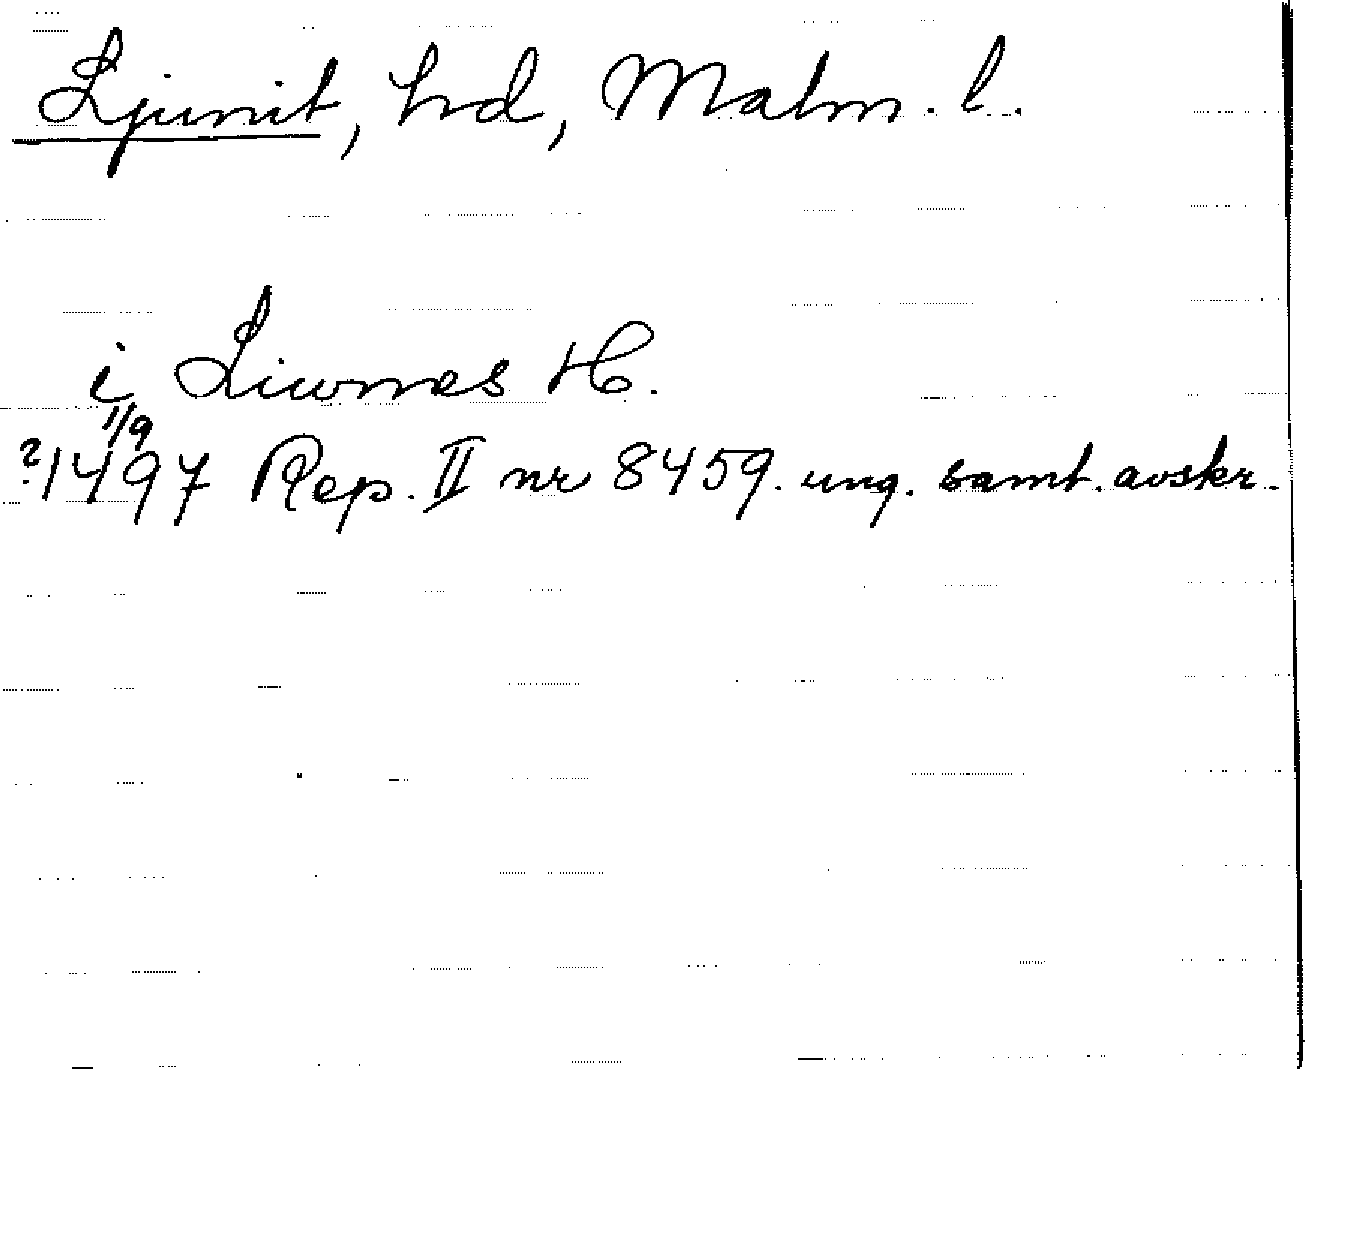 Ljunit, hd, Malm. l.
i Liwnes H.
1/9
? 1497 Rep. II nr 8459. ung. samt. avskr.